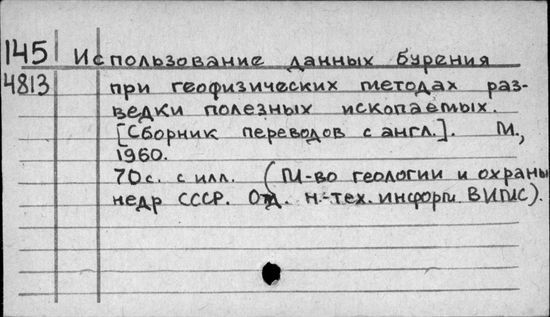 145 Использование данных бурения
4813 при геофизических методах раз-
ведки полезных ископаемых.
[Сборник переводов с англ.]. М.,
1960.
70с. с илл. (М-во геологии и охраны
недр СССР. Отд. н.-тех. информ. ВИМС).